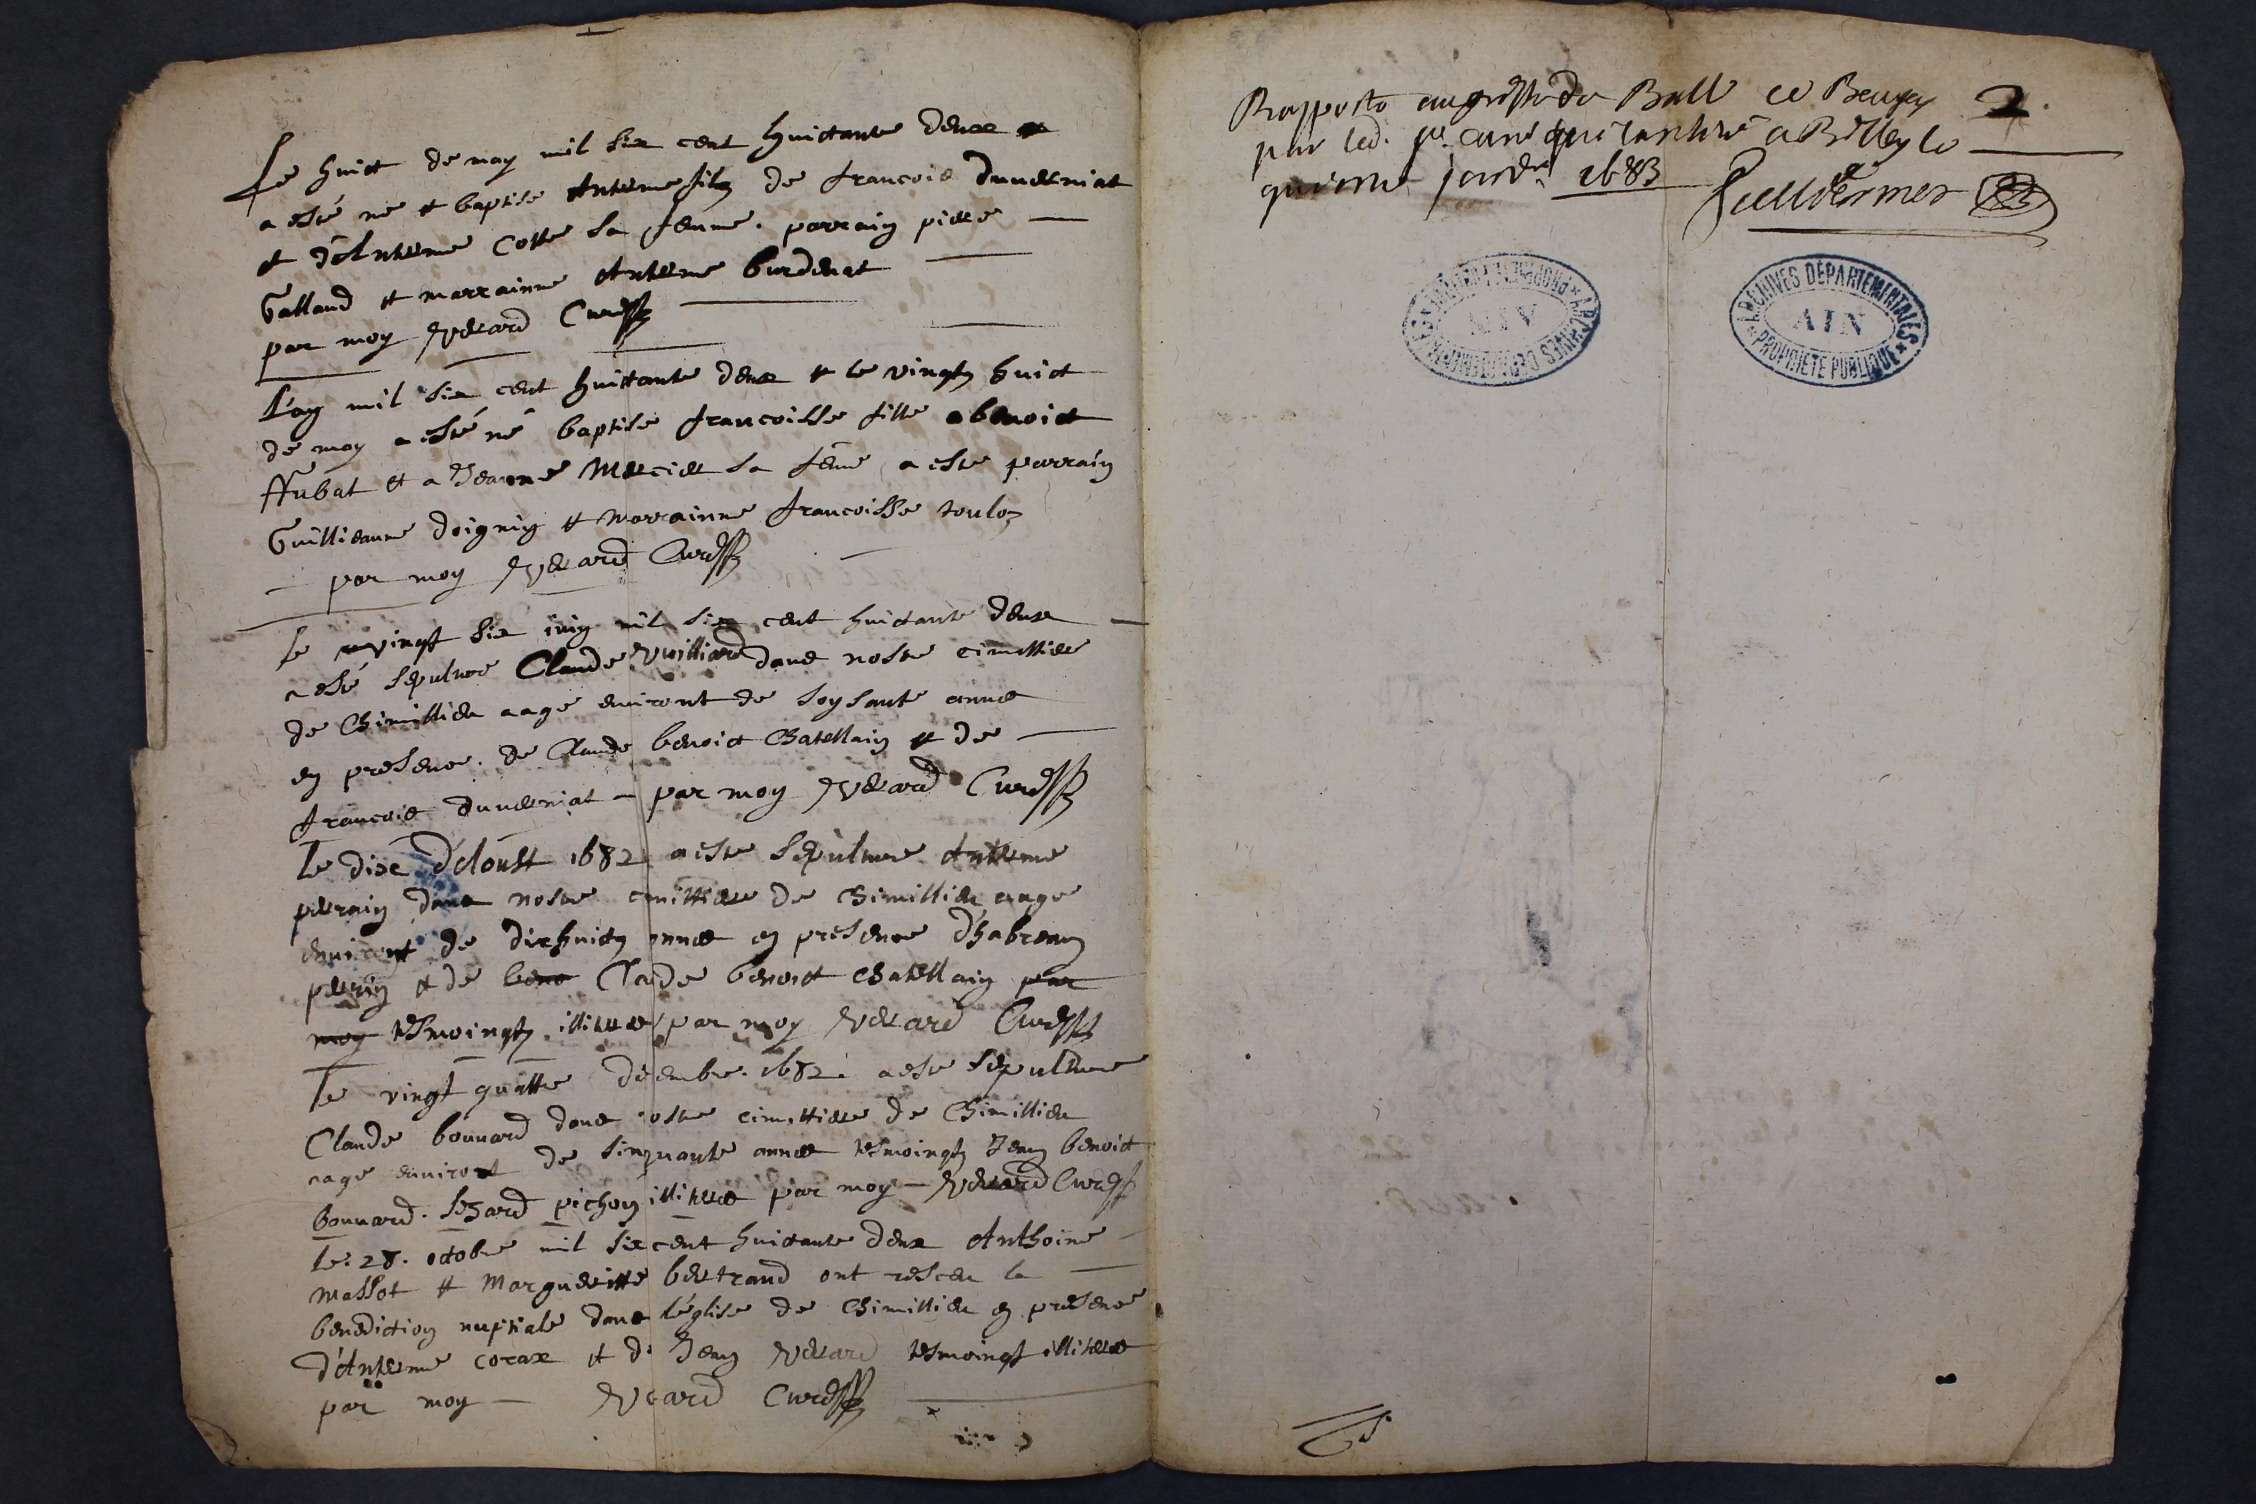 Le huict de may mil six cent huictante deux
a esté né et baptise Antelme filz de francois duuerniat
et d'Antelme Coste sa femme. parrain piere
Galland et marrainne Antelme burdenat
par moy Curé
L'an mil six cent huictante deux et le vingtz huict
de may a esté né baptise francoisse fille a benoict
et a Jeanne Mercier sa feme, a este parrain
Guillieaume doignin et marrainne francoisse
par moy Curé
le vingt six iuin mil six cent huictante deux
a esté sepulture Claude Vuilliard dans nostre cimittiere
de Chimillieu aage enuiront de soysante annee
en presence. de Claude benoict Chatellain et de
francois duuerniat par moy Curé
Le dixe d'Aoust 1682 a este sepulture Antelme
perrin dans nostre cimittiere de Chimillieu aage
enuiront de dixhuict annee en presence d'habrean
perrin et de beno Claude benoict Chatellain par
moy tesmoingtz illiteree par moy Curé
Le vingt quattre decembre. 1682. a este sepulture
Claude bonnard dans nostre cimittiere de Chimillieu
aage enuiront de sinquante annee tesmoingtz Jean benoict
bonnard. pichon illiteree par moy Curé
Le. 28. octobre mil six cent huictante deux Anthoine
Massot et Margueritte bertrand ont resceu la
benediction nuptiale dans l'église de Chimillieu en presence
d'Antelme corax et d. Jean tesmoingt illiteree
par moy Curé
Rapporté au greffe du Ball de Beugey 2.
par led. sr. curé a Belley le
quinze janvr. 1683
ARCHIVES DÉPARTEMENTALES AIN PROPRIÉTÉ PUBLIQUE
ARCHIVES DÉPARTEMENTALES AIN PROPRIÉTÉ PUBLIQUE